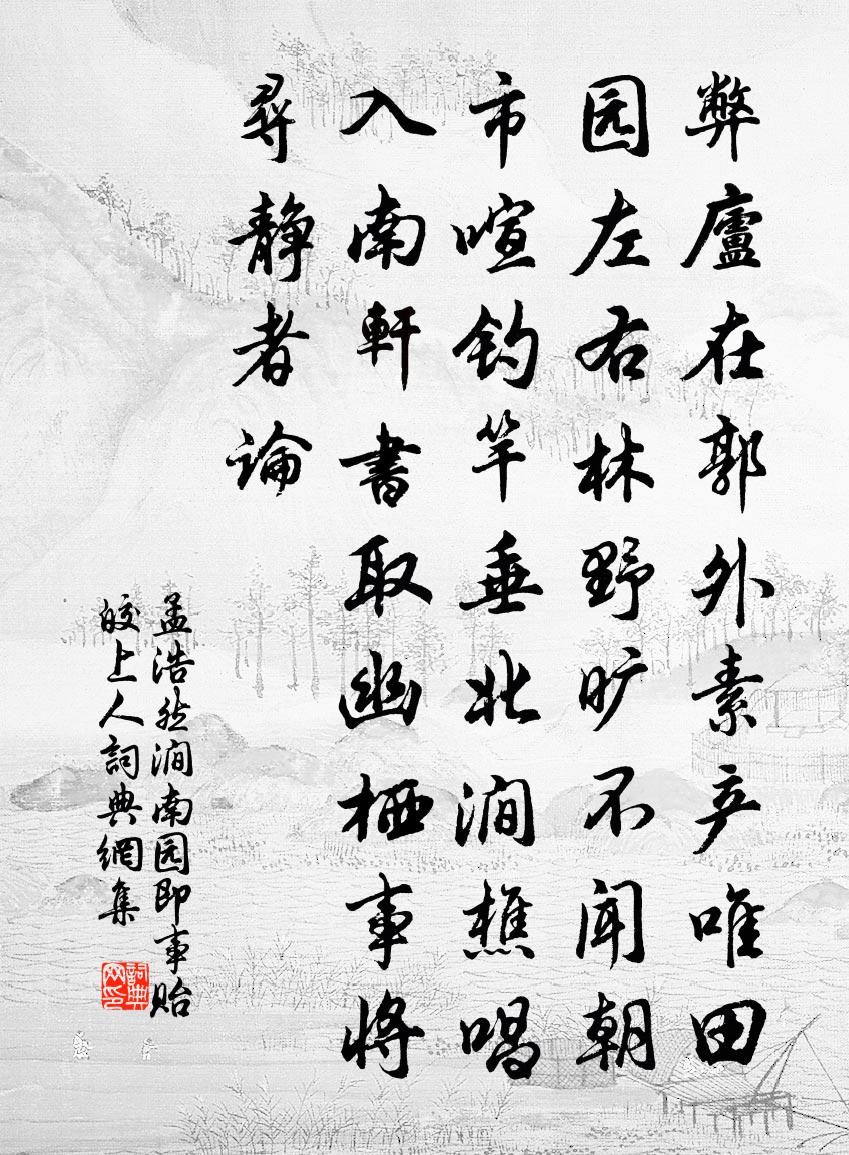 弊廬在郭外素产唯田
园左右林野旷不闻朝
市喧钓竿垂北涧樵唱
入南軒書取幽栖事将
尋静者論
孟浩然涧南园即事贻
皎上人詞典網集
詞典网印